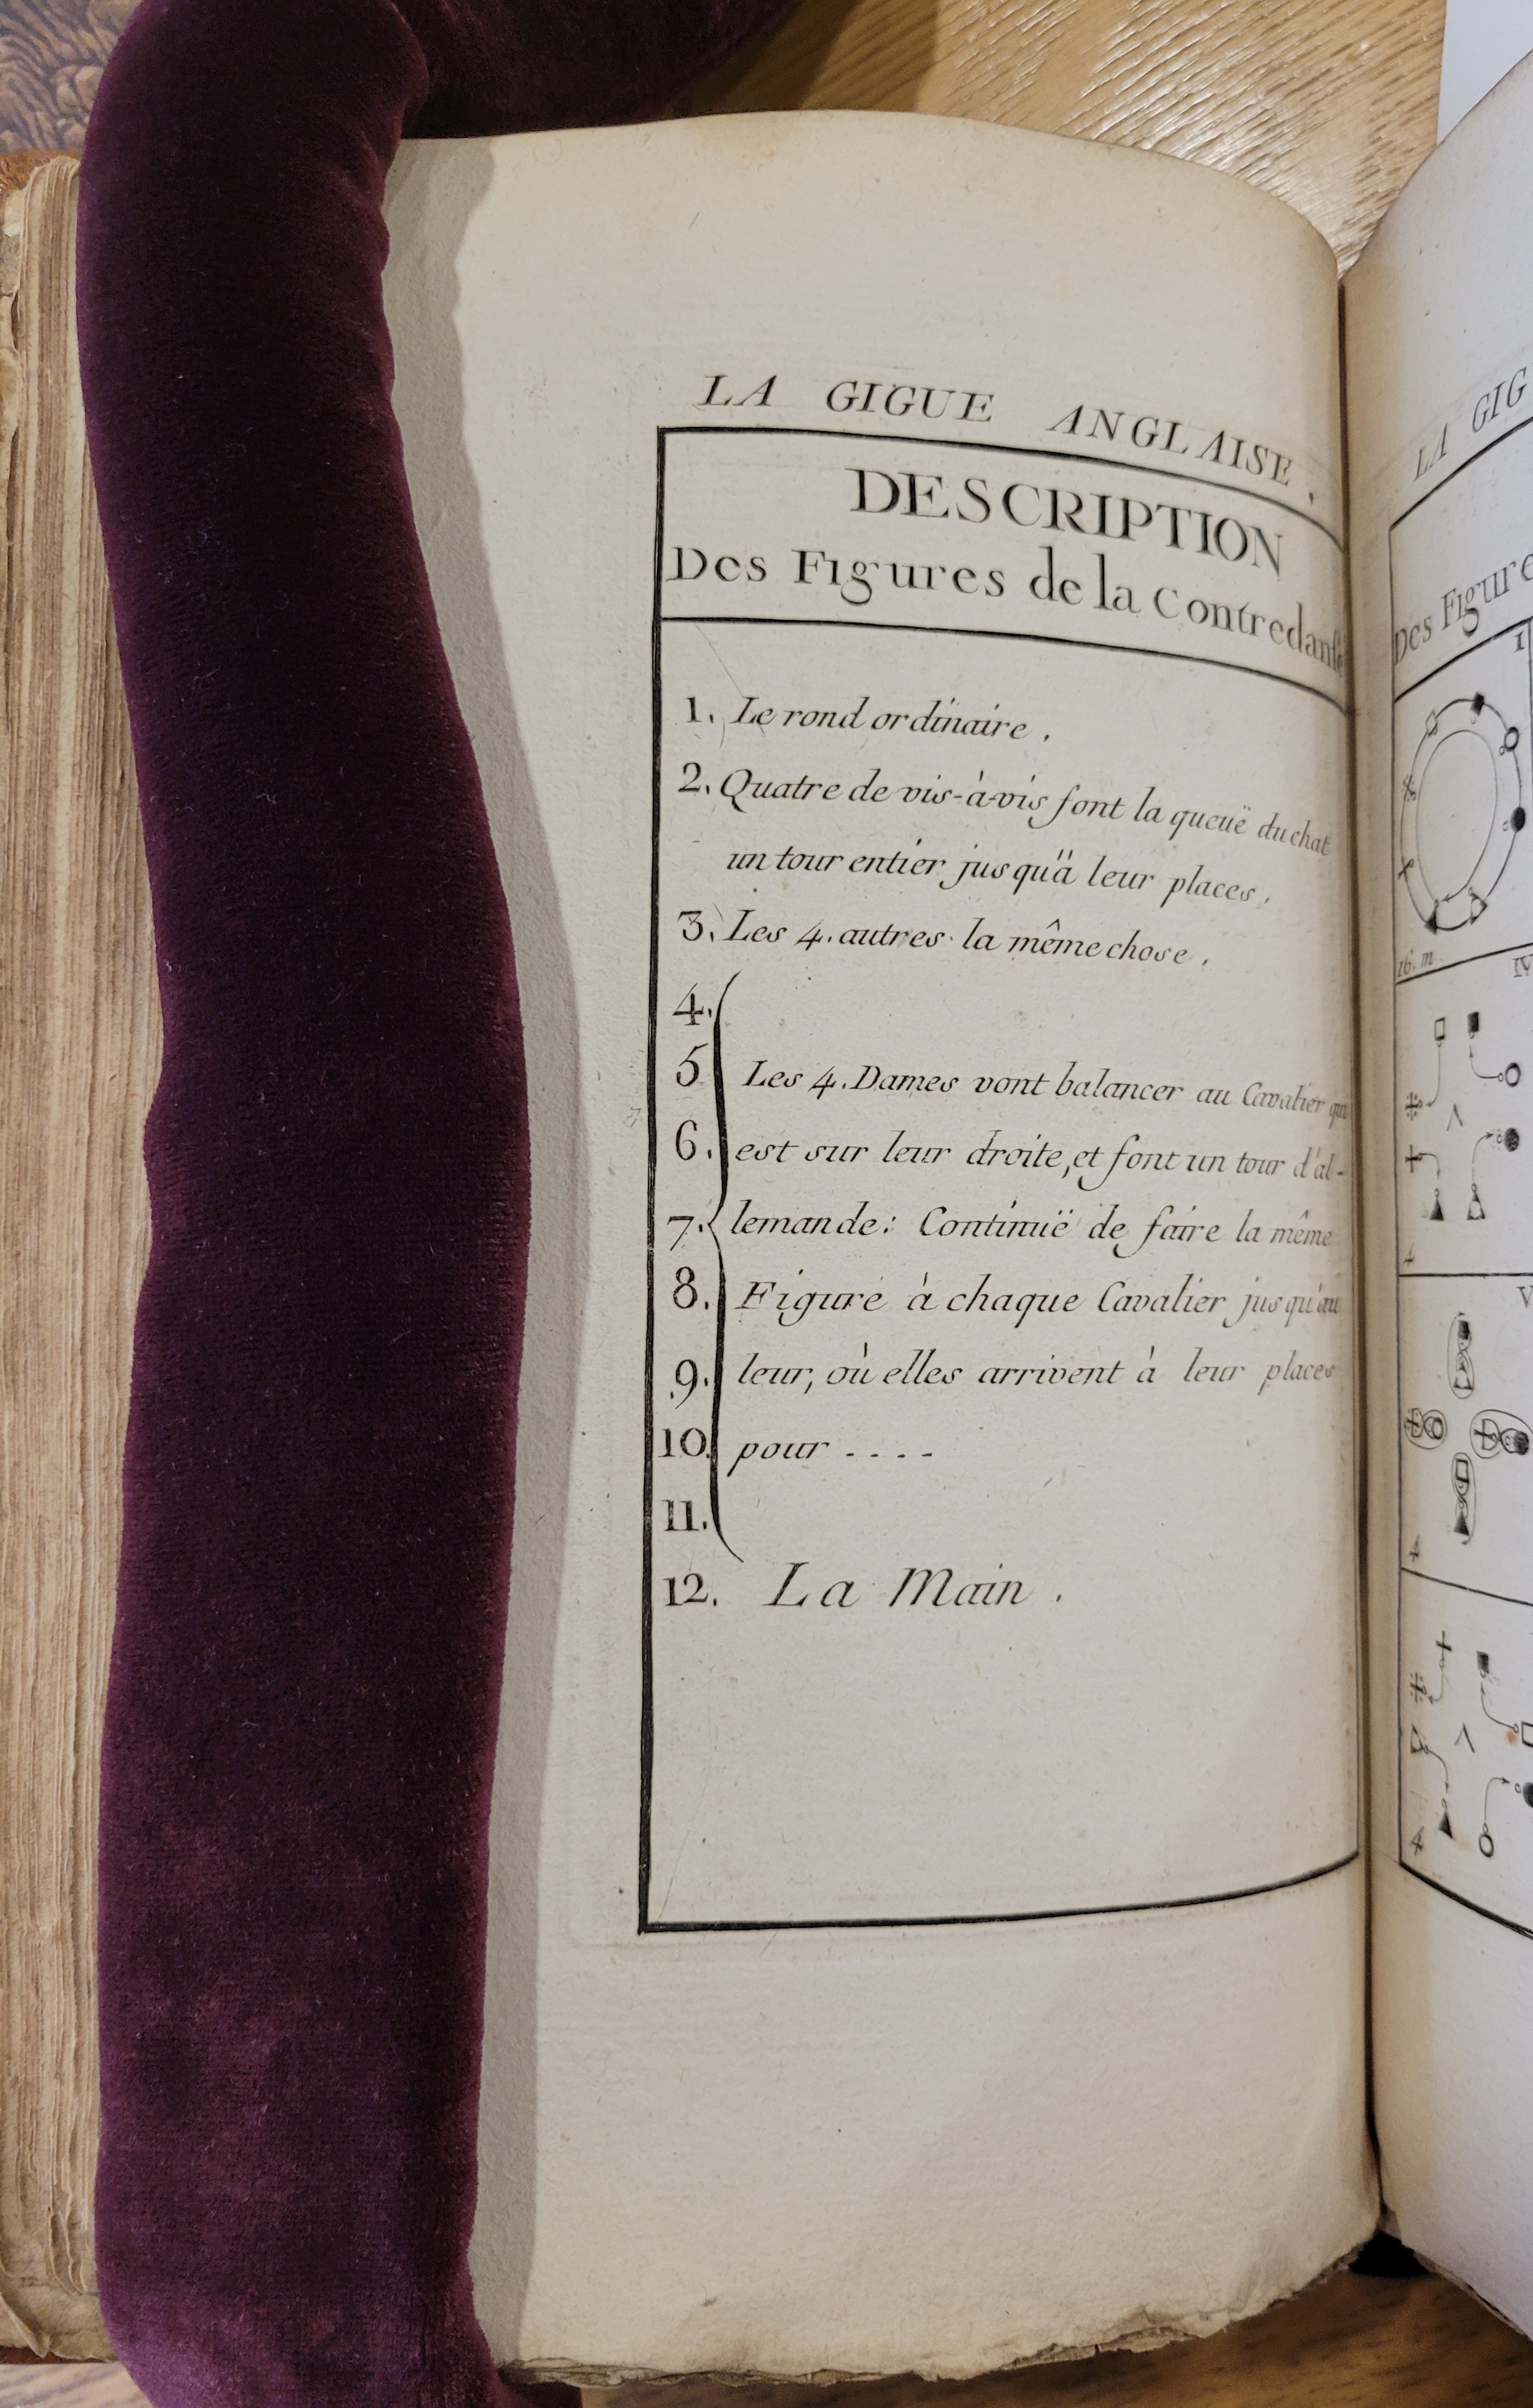 LA GIGUE ANGLAISE.
DESCRIPTION
Des Figures de la Contredanse
1. Le rond ordinaire.
2. Quatre de vis-à-vis font la queuë du chat
un tour entier jusqu'ä leur places.
3. Les 4. autres la même chose.
4.
5
Les 4. Dames vont balancer au Cavalier qui
6. est sur leur droite, et font un tour d'al-
7. lemande: Continuë de faire la même
8. Figure à chaque Cavalier jusqu'au
9. leur, où elles arrivent à leur places
10. pour ....
11.
12. La Main.
LA GIG
Des Figure
I
16. m
IV
4
V
4
4